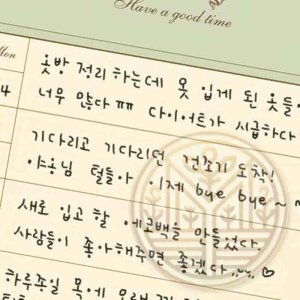 Have a good time
Mon
4
옷방 정리하는데 못 입게 된 옷들
너무 많다 ㅠㅠ 다이어트가 시급하다
기다리고 기다리던 건조기 도착!
야옹님 털들아 이제 bye bye~
새로 입고 할 에코백을 만들었다.
사람들이 좋아해주면 좋겠다... ♡
하루종일 목에